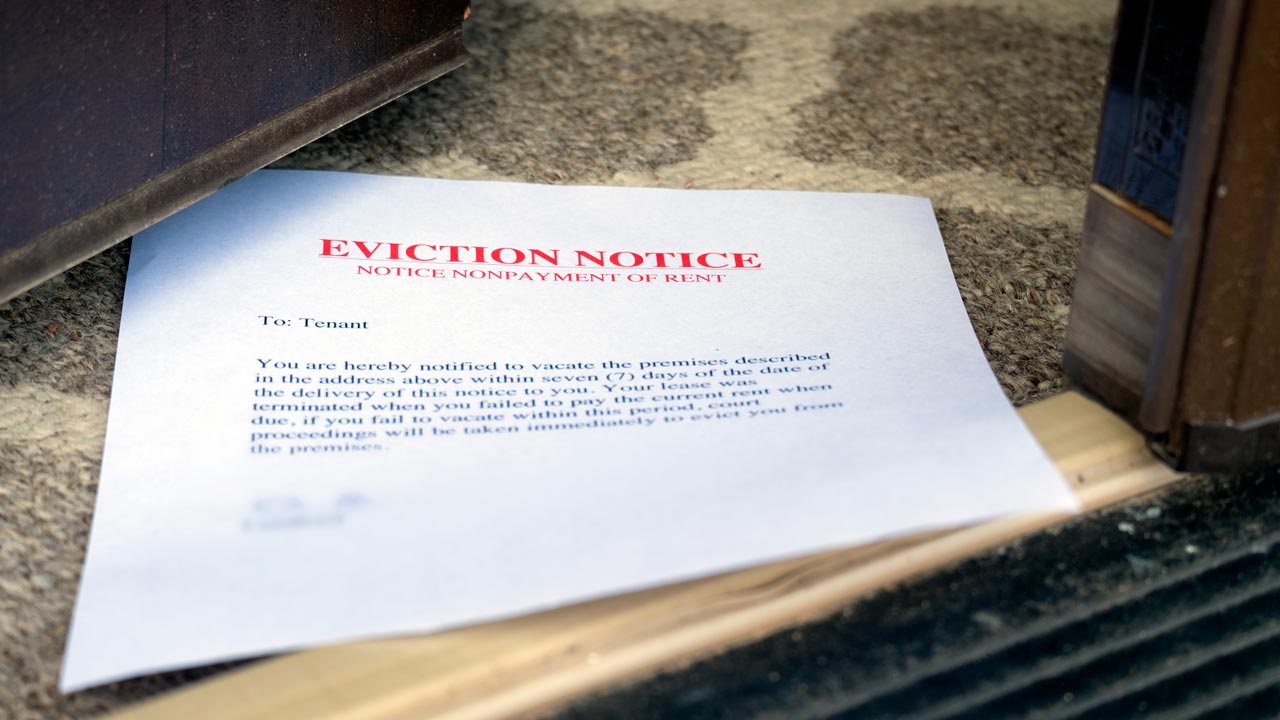 EVICTION NOTICE
NOTICE NONPAYMENT OF RENT
To: Tenant
You are hereby notified to vacate the premises described
in the address above within seven (7) days of the date of
the delivery of this notice to you. Your lease was
terminated when you failed to pay the current rent when
due, if you fail to vacate within this period, court
proceedings will be taken immediately to evict you from
the premises.